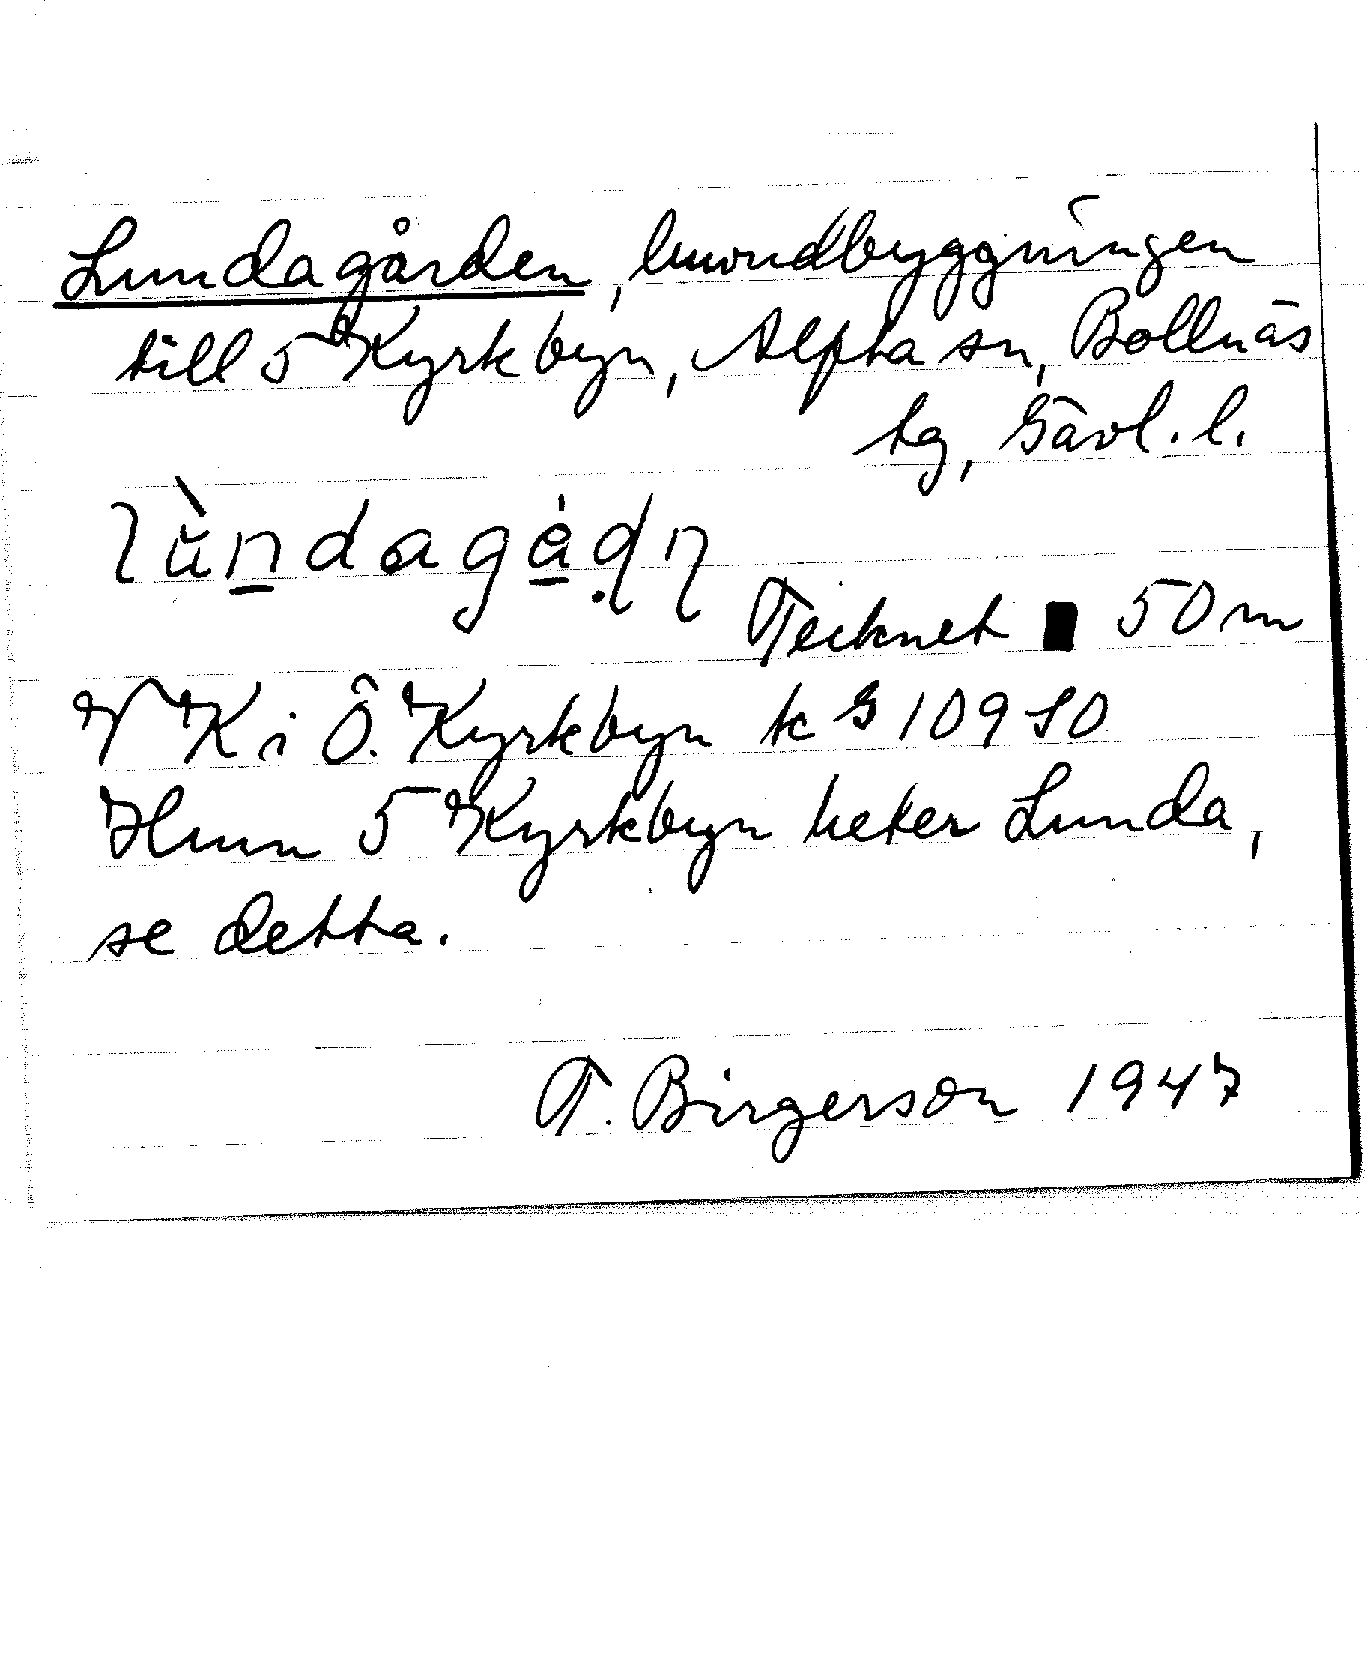 Lundagården, huvudbyggningen
till 5 Kyrkbyn, Alfta sn, Bollnäs
tg, Gävl. l.
lùndagå̇ḍn
Tecknet ■ 50 m
V K i Ö. Kyrkbyn tc G 109 80
Hmn 5 Kyrkbyn heter Lunda,
se detta.
T. Birgerson 1947